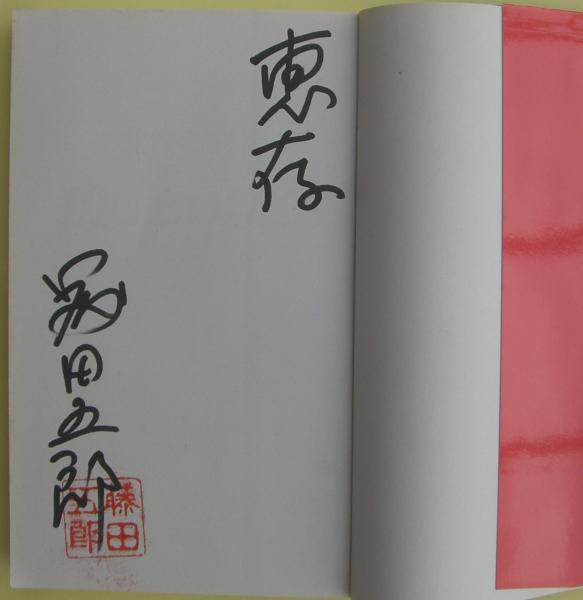 恵存
藤田五郎
藤田
五郎